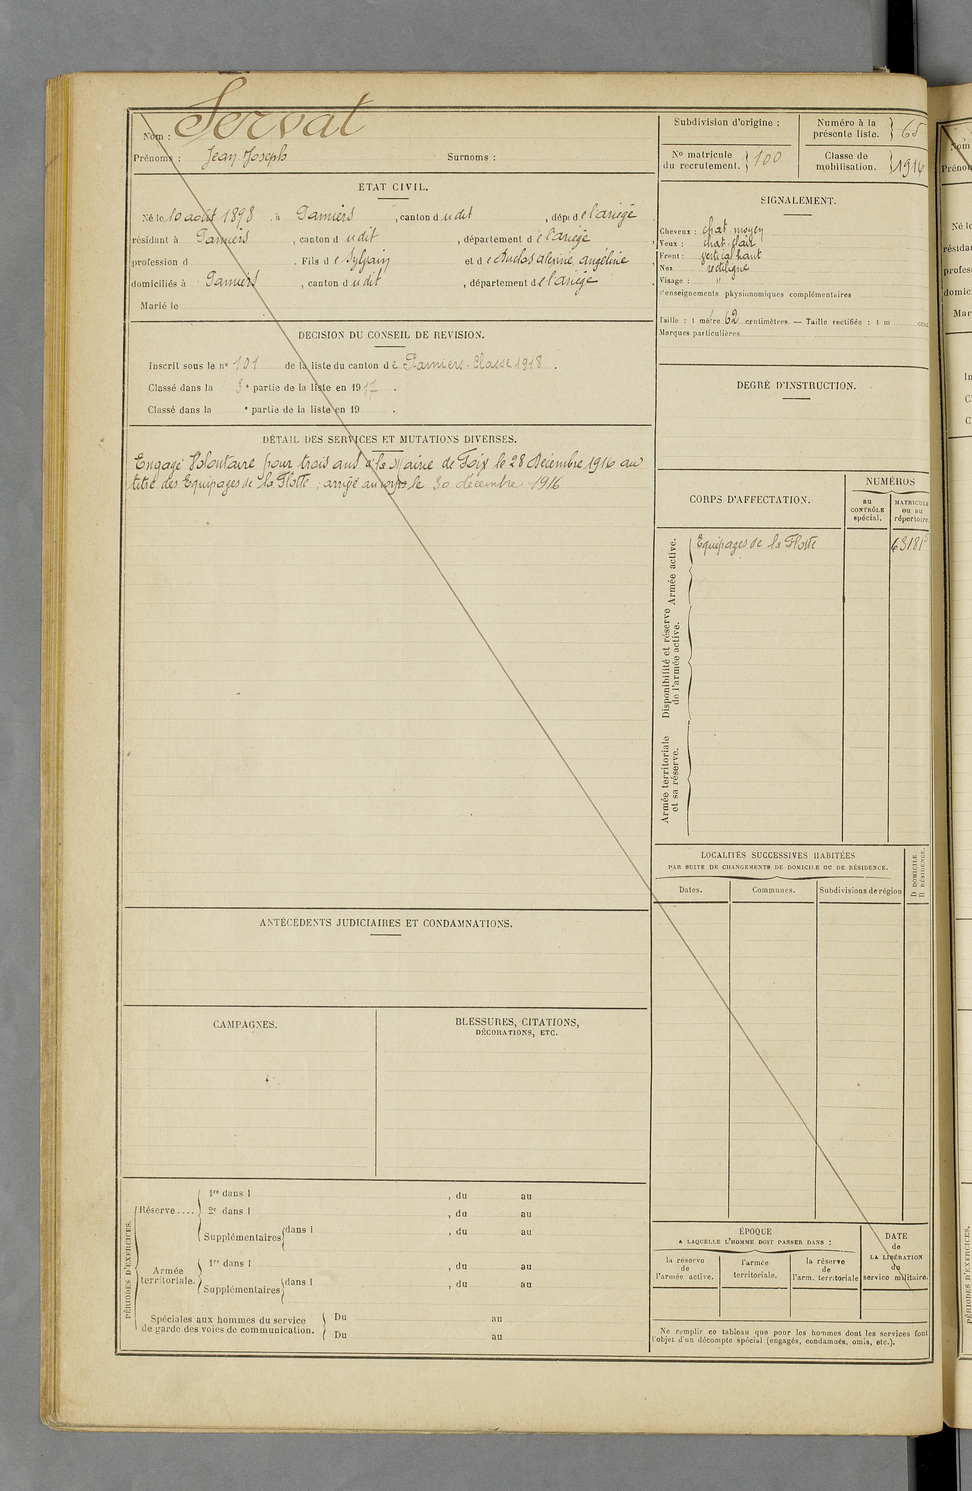 Nom : Servat
Prénoms : Jean Joseph Surnoms :
ÉTAT CIVIL.
Né le 10 août 1898, à Pamiers, canton dudit, dépt de l'ariège
résidant à Pamiers, canton dudit, département de l'ariège
profession d . Fils de Sylvain et de Duclos alexine angéline
domiciliés à Pamiers, canton dudit, département de l'ariège
Marié le
DÉCISION DU CONSEIL DE REVISION.
Inscrit sous le n° 101 de la liste du canton de Pamiers. Classe 1918.
Classé dans la 3e partie de la liste en 1917.
Classé dans la e partie de la liste en 19 .
DÉTAIL DES SERVICES ET MUTATIONS DIVERSES.
Engagé Volontaire pour trois ans à la Mairie de Foix le 28 décembre 1916 au
titre des Equipages de la Flotte ; arrivé au corps le 30 décembre 1916
ANTÉCÉDENTS JUDICIAIRES ET CONDAMNATIONS.
CAMPAGNES.
BLESSURES, CITATIONS,
DÉCORATIONS, ETC.
PÉRIODES D'EXERCICES.
Réserve....
1re dans l , du au
2e dans l , du au
Supplémentaires dans l , du au
Armée
territoriale.
1re dans l , du au
Supplémentaires dans l , du au
Spéciales aux hommes du service
de garde des voies de communication.
Du au
Du au
Subdivision d'origine :
Numéro à la
présente liste. 65
N° matricule
du recrutement. 100
Classe de
mobilisation. 1916
SIGNALEMENT.
Cheveux : chat. moyen
Yeux : chat. clair
Front : vertical haut
Nez rectiligne
Visage : "
Renseignements physionomiques complémentaires
Taille : 1 mètre 62 centimètres. — Taille rectifiée : 1 m cent
Marques particulières
DEGRÉ D'INSTRUCTION.
CORPS D'AFFECTATION.
NUMÉROS
au
CONTRÔLE
spécial.
MATRICULE
ou au
répertoire.
Armée active.
Equipages de la Flotte 63181
Disponibilité et réserve
de l'armée active.
Armée territoriale
et sa réserve.
LOCALITÉS SUCCESSIVES HABITÉES
PAR SUITE DE CHANGEMENTS DE DOMICILE OU DE RÉSIDENCE.
D DOMICILE
R RÉSIDENCE.
Dates. Communes. Subdivisions de région
ÉPOQUE
A LAQUELLE L'HOMME DOIT PASSER DANS :
la réserve
de
l'armée active.
l'armée
territoriale.
la réserve
de
l'arm. territoriale
DATE
de
LA LIBÉRATION
du
service militaire.
Ne remplir ce tableau que pour les hommes dont les services font
l'objet d'un décompte spécial (engagés, condamnés, omis, etc.).